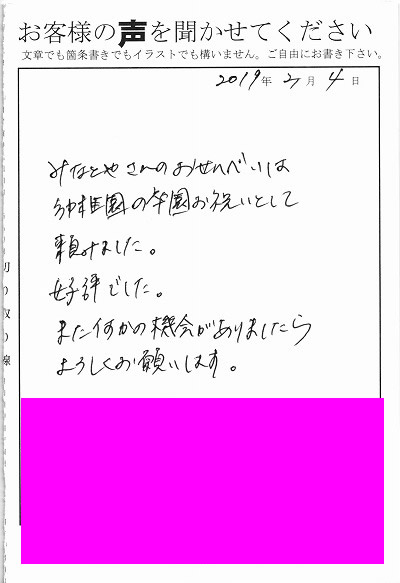 お客様の声を聞かせてください
文章でも箇条書きでもイラストでも構いません。ご自由にお書き下さい。
2019年3月4日
みなとやさんのおせんべいは
幼稚園の卒園お祝いとして
頼みました。
好評でした。
また何かの機会がありましたら
よろしくお願いします。
切り取り線